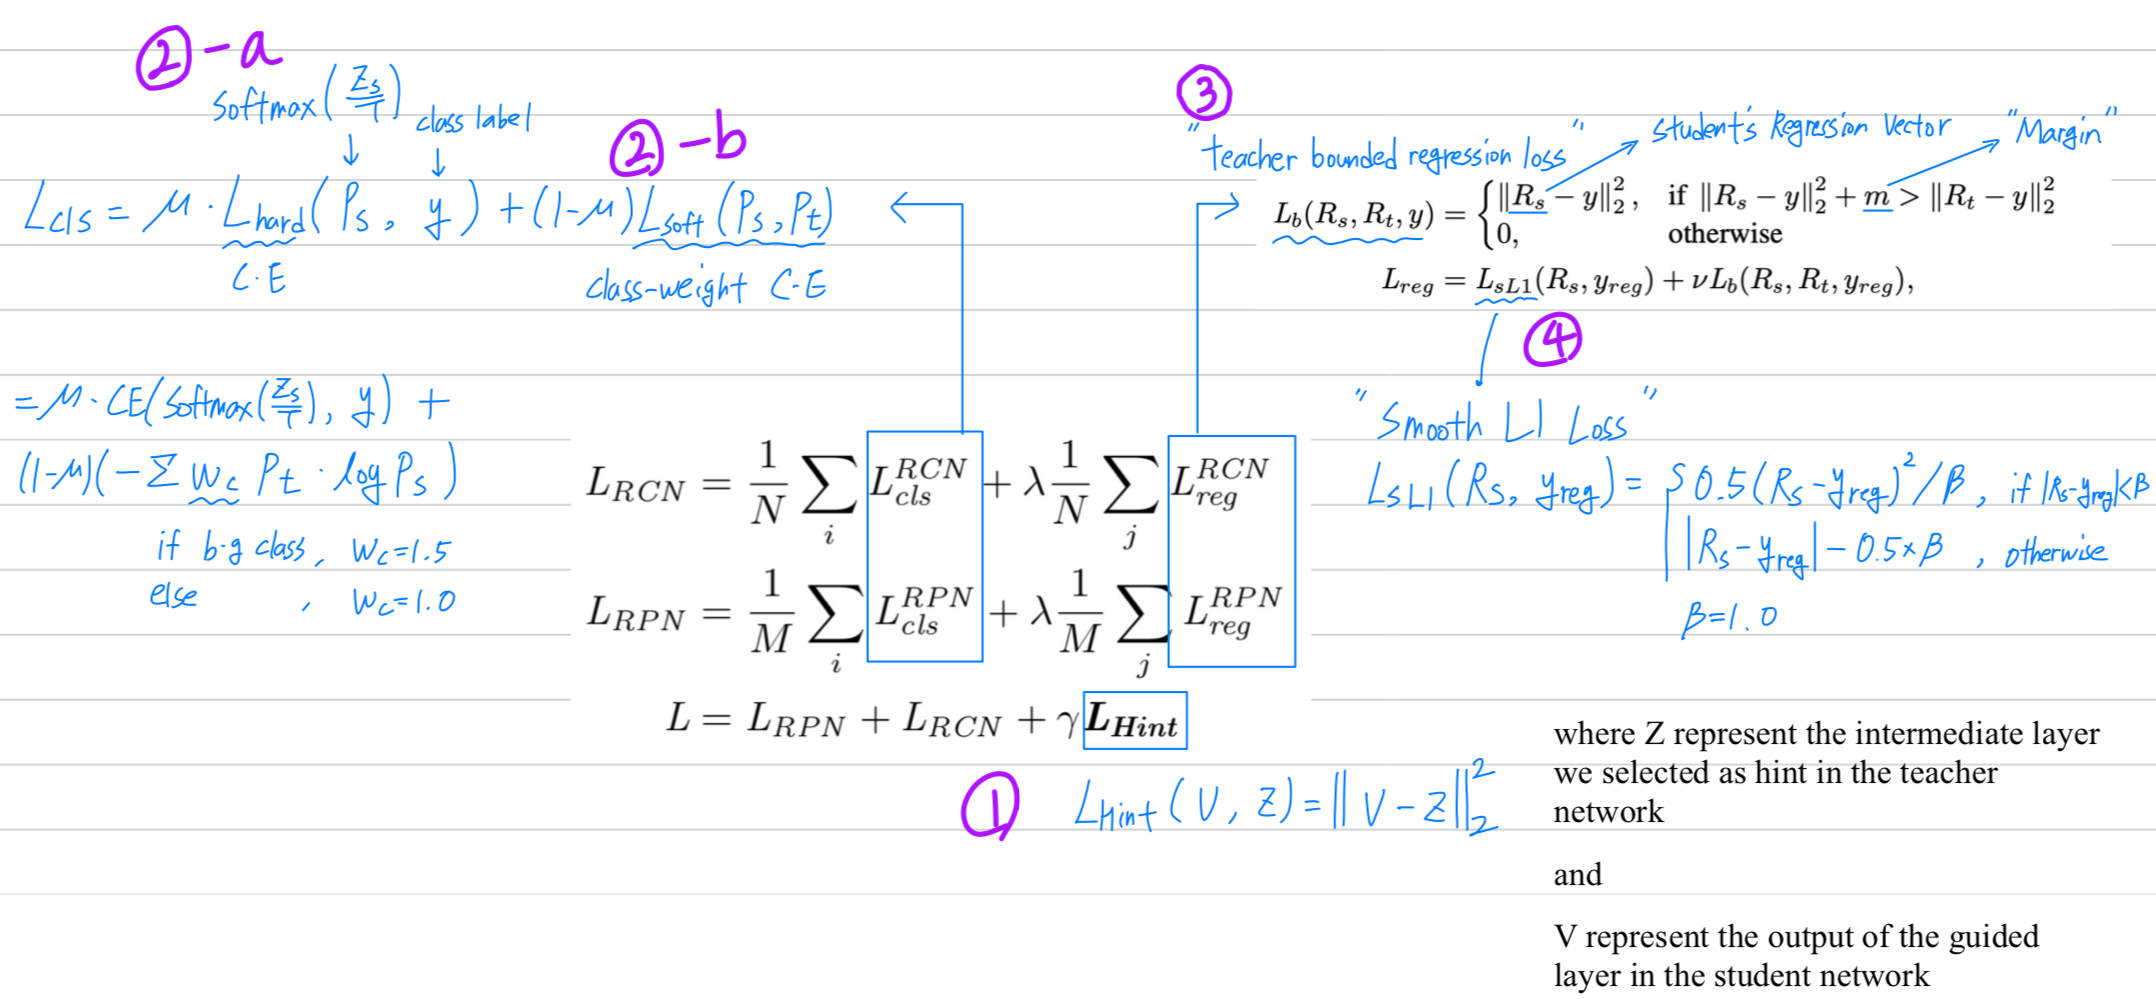 ②-a
Softmax(Zs/T)
class label
②-b
Lcls = μ · Lhard(Ps, y) + (1-μ)Lsoft(Ps, Pt)
C·E
class-weight C·E
= μ · CE(Softmax(Zs/T), y) +
(1-μ)(-Σ Wc Pt · log Ps)
if b·g class, Wc=1.5
else , Wc=1.0
③
"teacher bounded regression loss"
Student's Regression Vector
"Margin"
L_b(R_s, R_t, y) = { ‖R_s − y‖₂², if ‖R_s − y‖₂² + m > ‖R_t − y‖₂²
0, otherwise
L_reg = L_sL1(R_s, y_reg) + νL_b(R_s, R_t, y_reg),
④
"Smooth L1 Loss"
LsL1(Rs, yreg) = { 0.5(Rs-yreg)²/β, if |Rs-yreg|<β
|Rs-yreg| - 0.5×β , otherwise
β=1.0
L_RCN = 1/N ∑_i L_cls^RCN + λ 1/N ∑_j L_reg^RCN
L_RPN = 1/M ∑_i L_cls^RPN + λ 1/M ∑_j L_reg^RPN
L = L_RPN + L_RCN + γL_Hint
①
LHint(V, Z) = ‖V-Z‖₂²
where Z represent the intermediate layer
we selected as hint in the teacher
network
and
V represent the output of the guided
layer in the student network